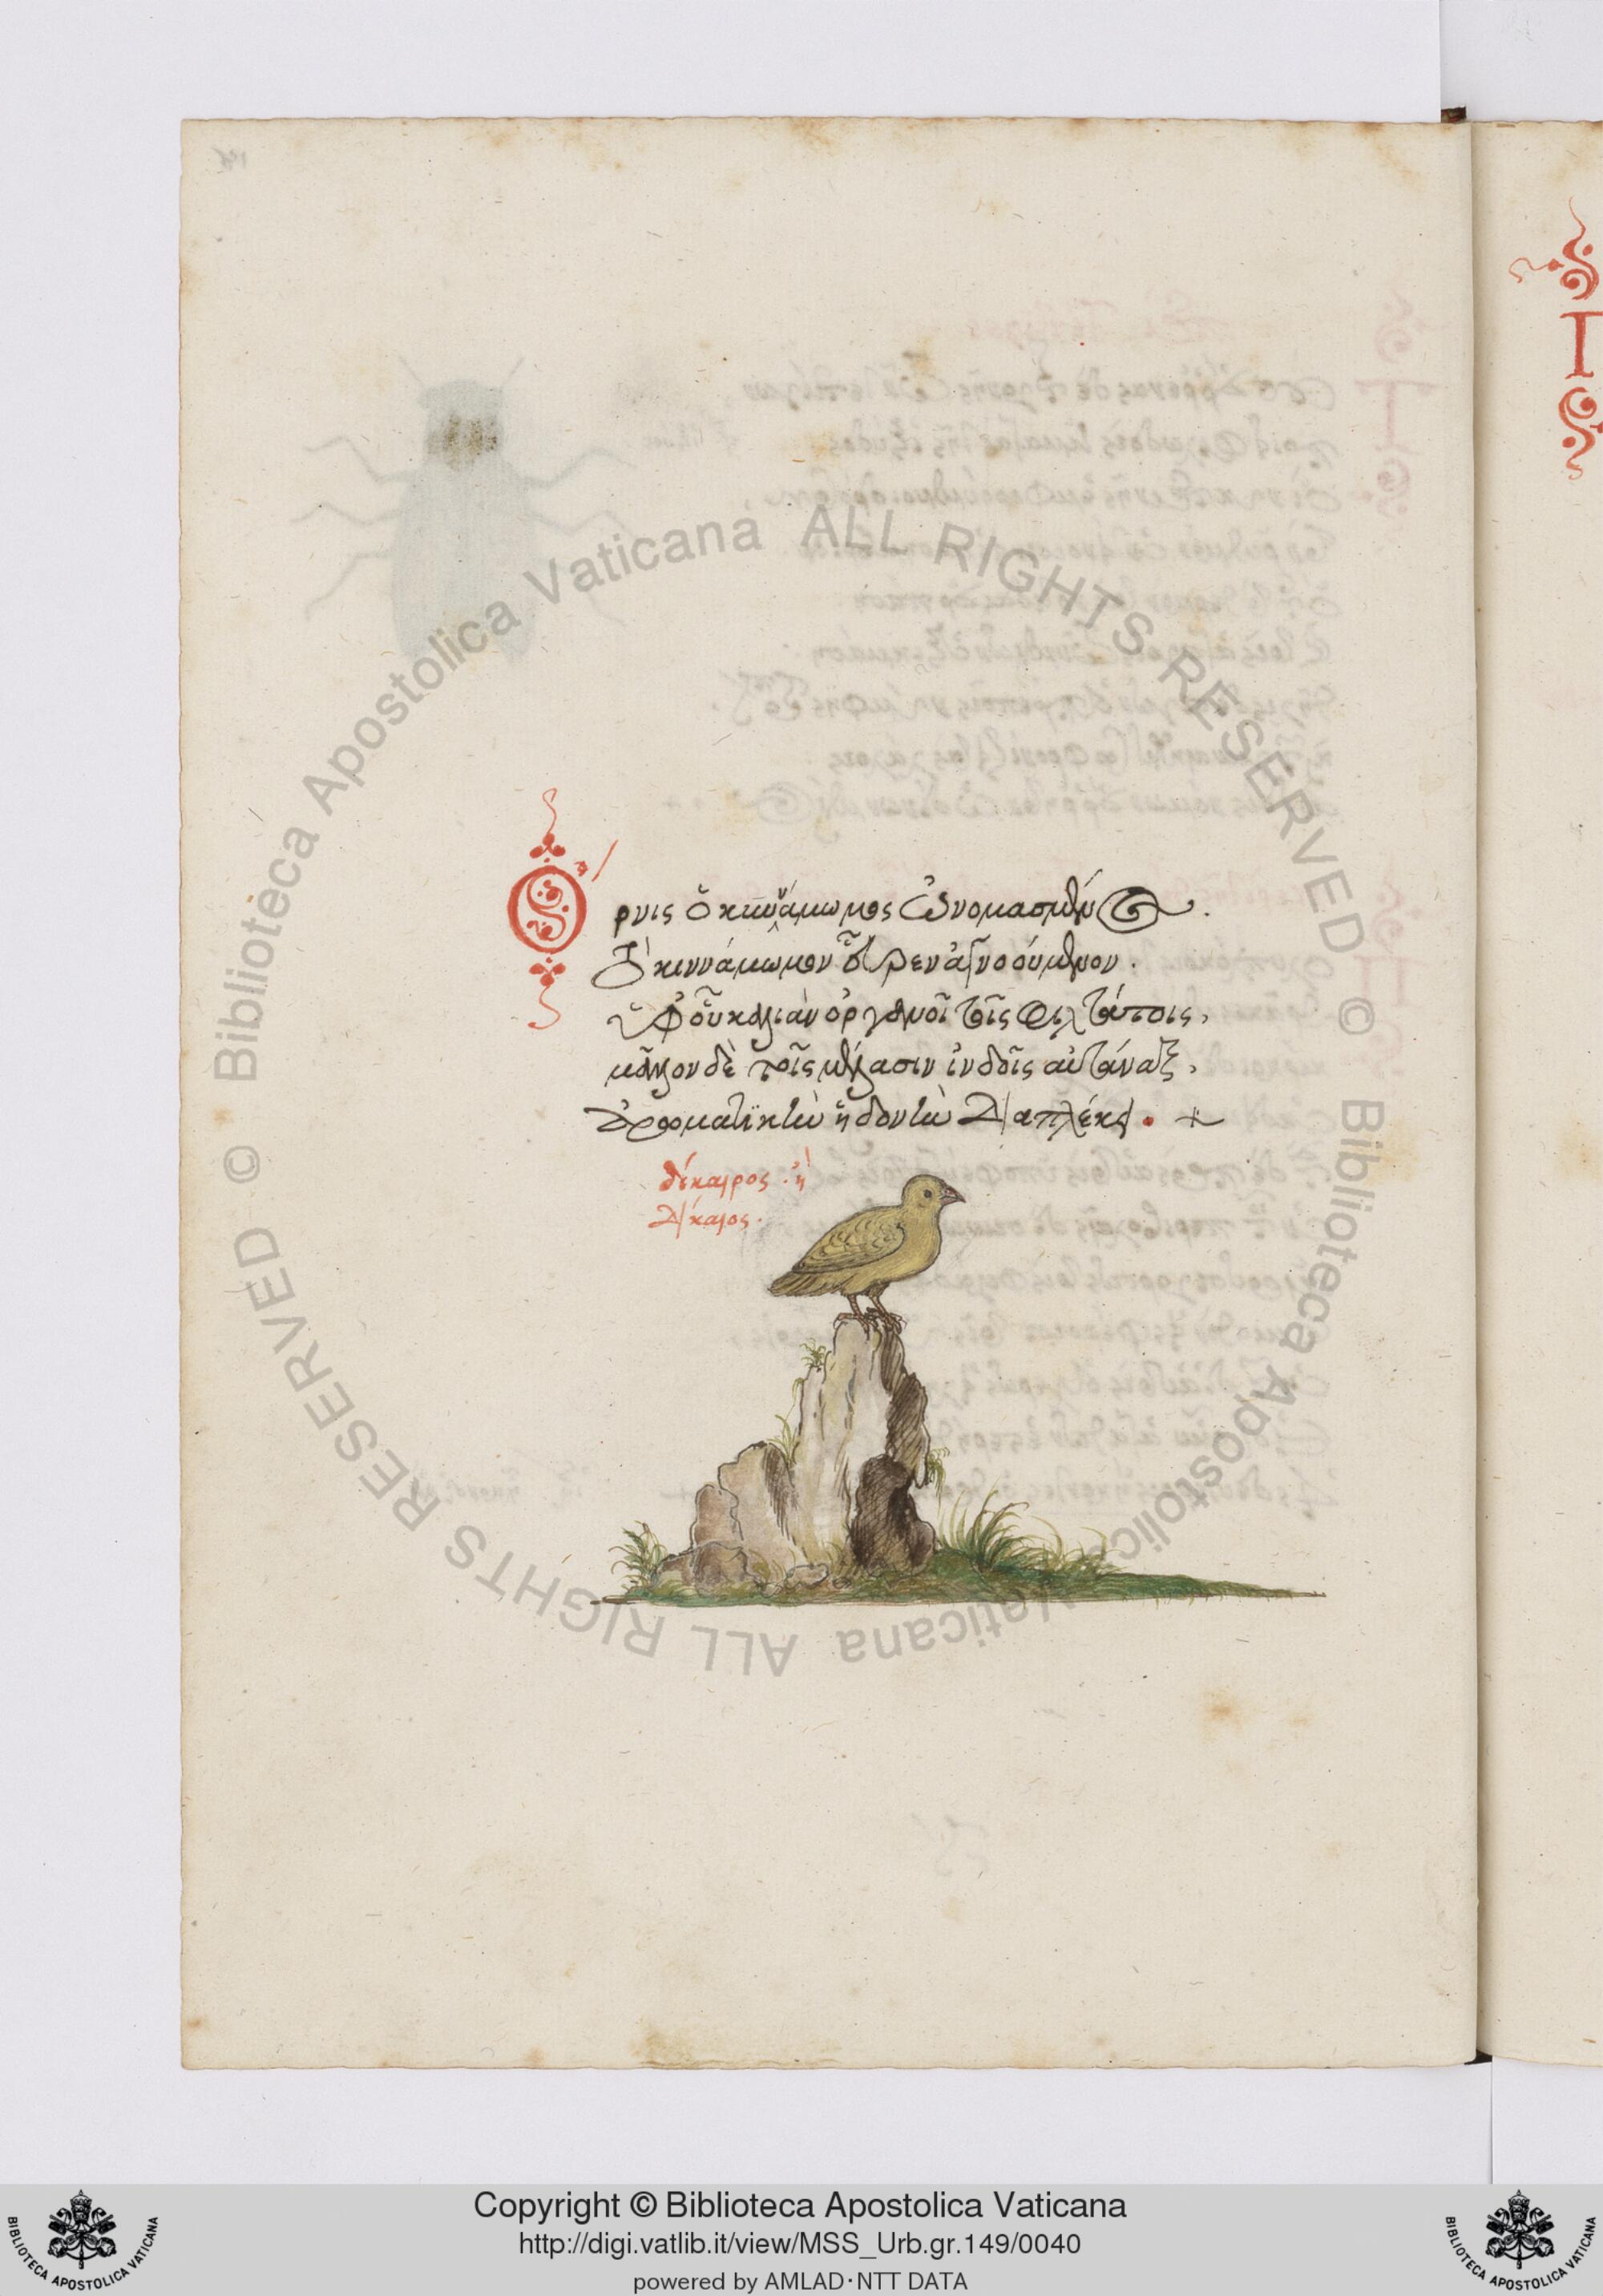 Ὄρνις ὁ κιννάμωμος ὠνομασμένος.
Τὸ κιννάμωμον εὗρεν ἀγνοούμενον.
ὑφ' οὗ καλιὰν ὀργανοῖ τοῖς φιλτάτοις,
μᾶλλον δὲ τοῖς μέλασιν ἰνδοῖς αὐτάναξ,
ἀρωματικὴν ἡδονὴν διαπλέκει. +
δίκαιρος. ἢ
δίκαιος.
Biblioteca Apostolica Vaticana ALL RIGHTS RESERVED ©
Biblioteca Apostolica Vaticana ALL RIGHTS RESERVED ©
Copyright © Biblioteca Apostolica Vaticana
http://digi.vatlib.it/view/MSS_Urb.gr.149/0040
powered by AMLAD·NTT DATA
BIBLIOTECA APOSTOLICA VATICANA
BIBLIOTECA APOSTOLICA VATICANA